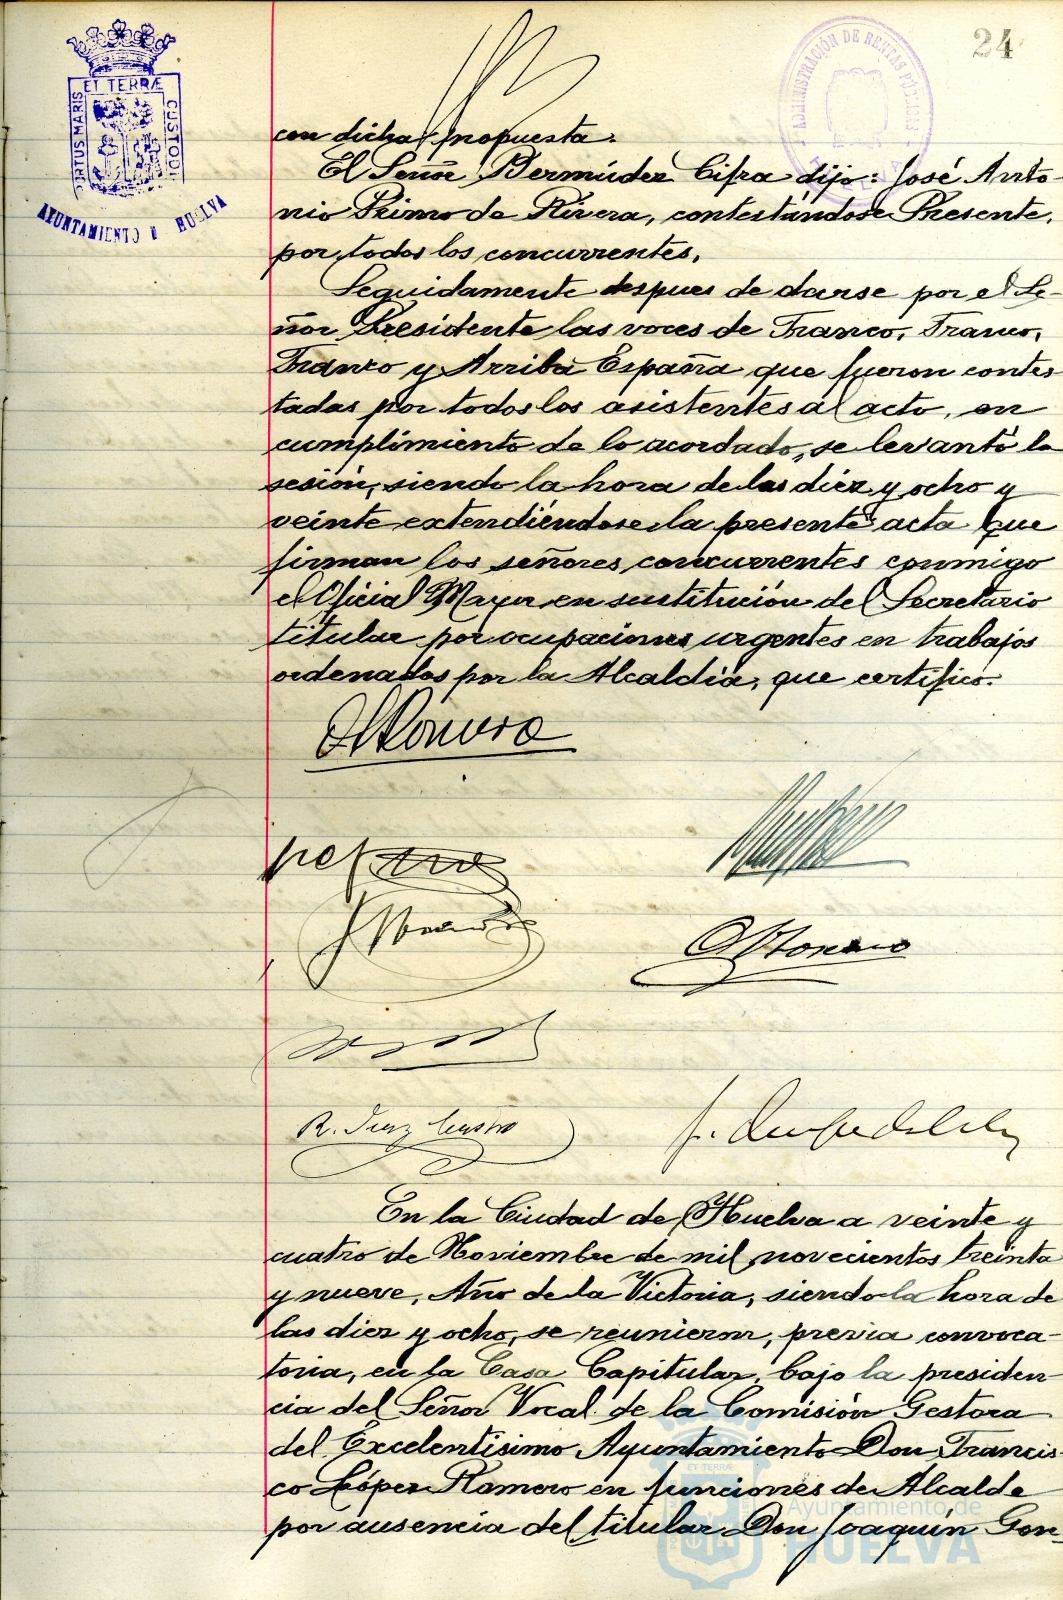 24
ET TERRÆ
PORTUS MARIS
CUSTODI
AYUNTAMIENTO HUELVA
ADMINISTRACIÓN DE RENTAS PÚBLICAS
con dicha propuesta.
El Señor Bermúdez Cifra dijo: José Anto-
nio Primo de Rivera, contestándose Presente,
por todos los concurrentes.
Seguidamente despues de darse por el Se-
ñor Presidente las voces de Franco, Franco,
Franco y Arriba España que fueron contes
tadas por todos los asistentes al acto, en
cumplimiento de lo acordado, se levantó la
sesión, siendo la hora de las diez y ocho y
veinte extendiéndose la presente acta que
firman los señores concurrentes conmigo
el Oficial Mayor en sustitución del Secretario
titular por ocupaciones urgentes en trabajos
ordenados por la Alcaldía, que certifico.
R. Diaz Castro
En la Ciudad de Huelva a veinte y
cuatro de Noviembre de mil novecientos treinta
y nueve, Año de la Victoria, siendo la hora de
las diez y ocho, se reunieron, previa convoca-
toria, en la Casa Capitular, bajo la presiden
cia del Señor Vocal de la Comisión Gestora
del Excelentísimo Ayuntamiento Don Francis-
co López Romero en funciones de Alcalde
por ausencia del titular Don Joaquín Gon-
Ayuntamiento de
HUELVA